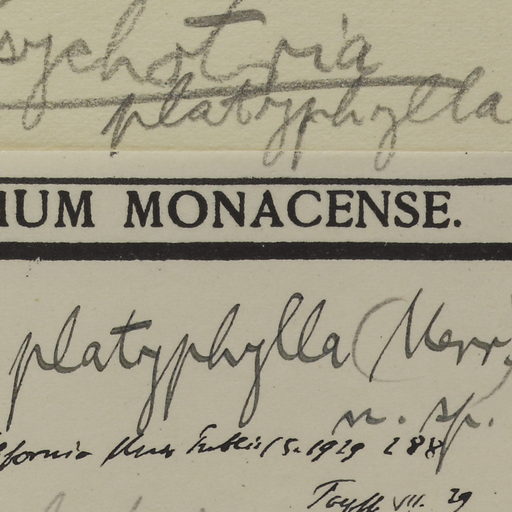 sychotria
platyphylla
IUM MONACENSE.
platyphylla (Merr.
n. sp.
ifornia 15. 1929 288
VII. 29